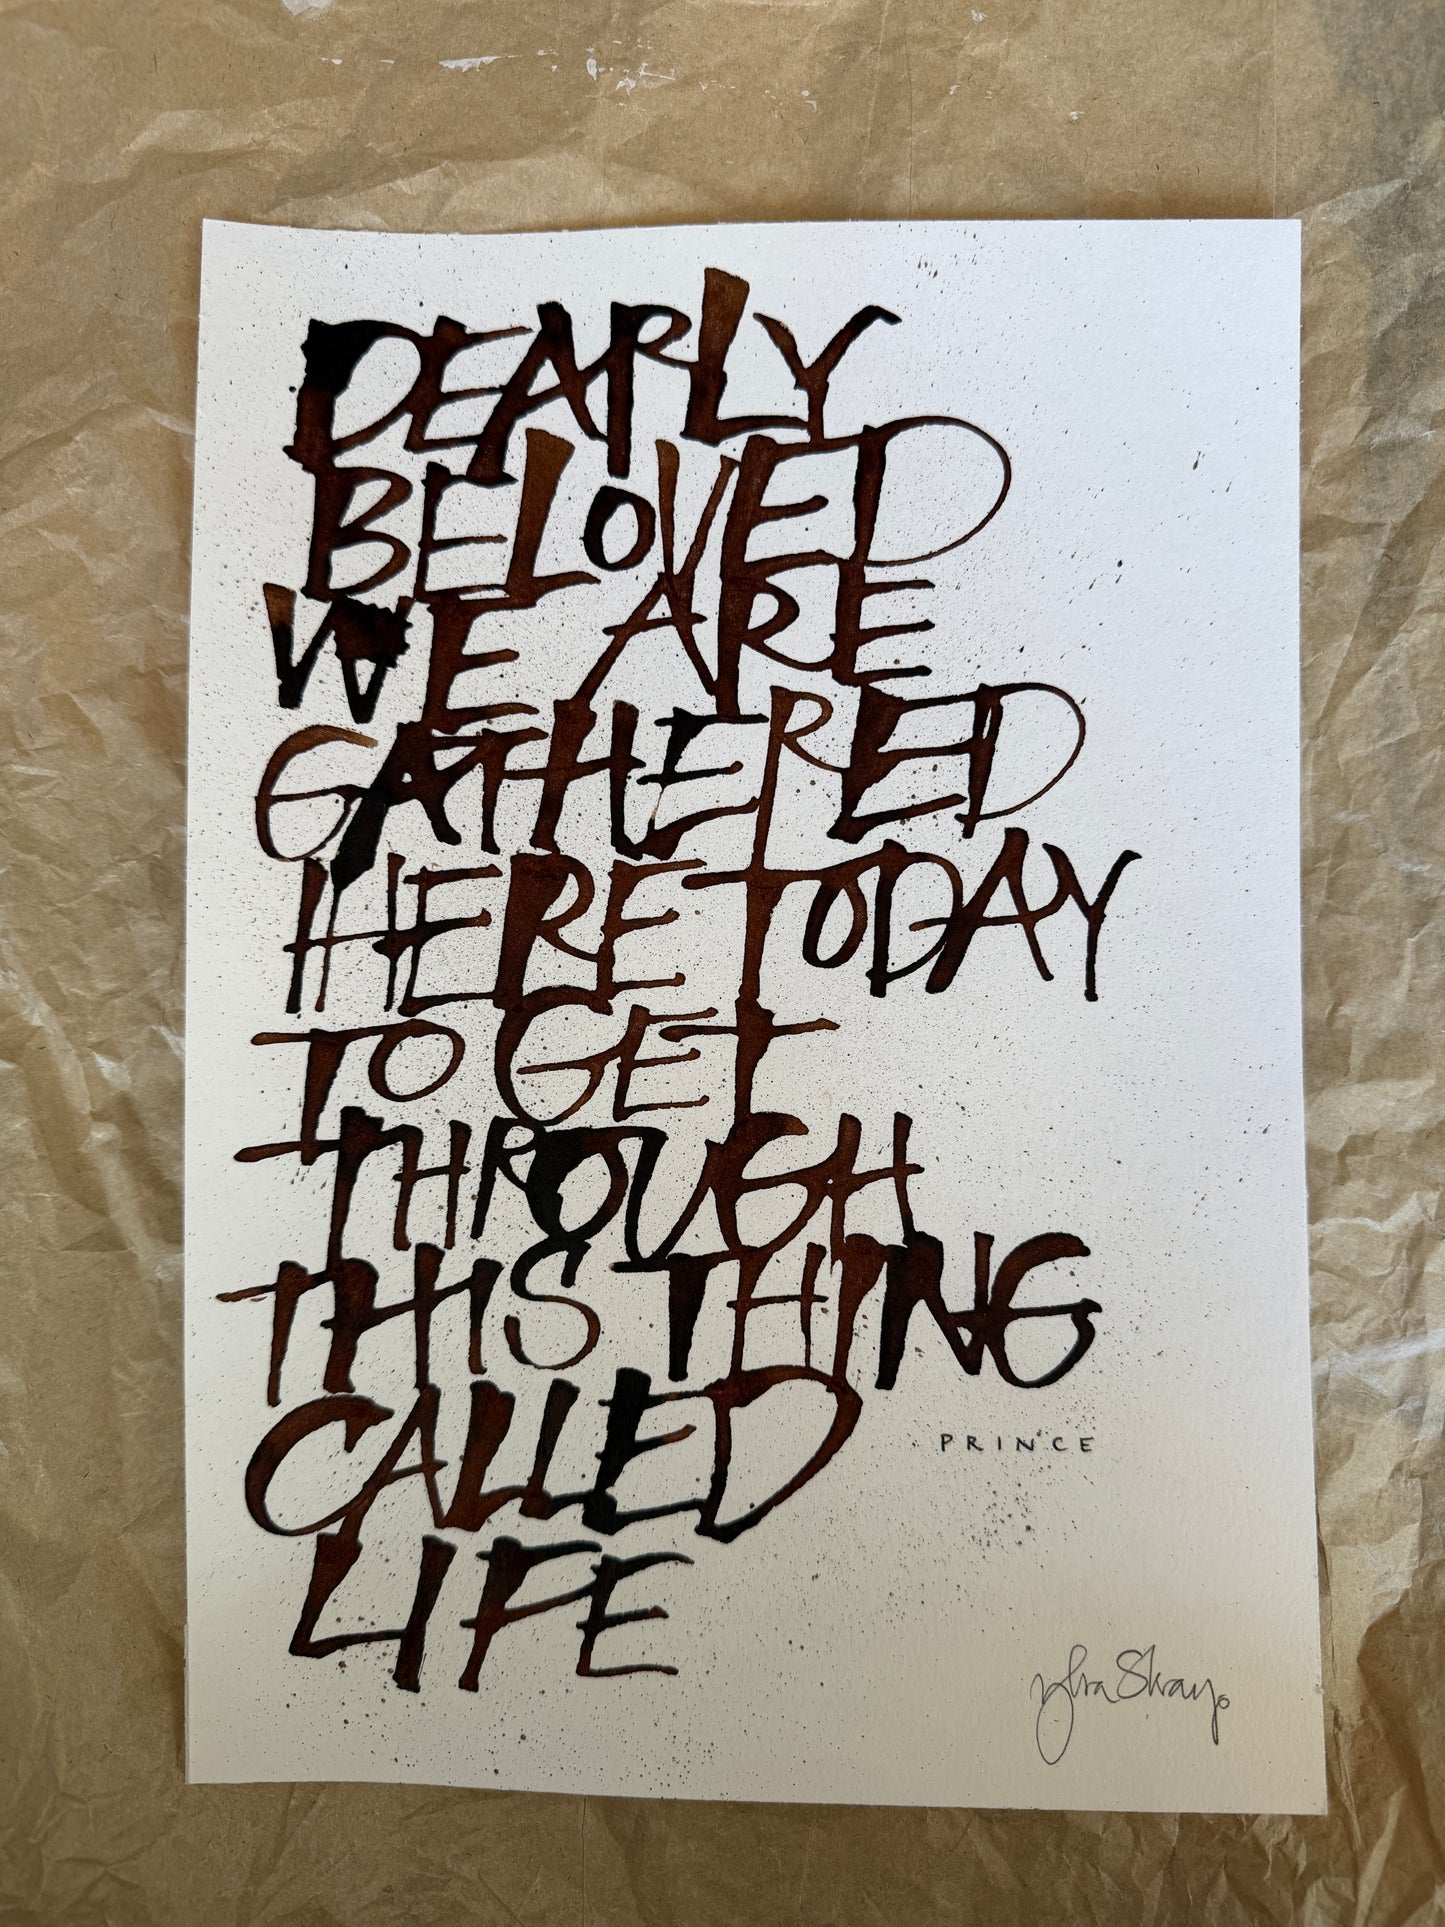 DEARLY
BELOVED
WE ARE
GATHERED
HERE TODAY
TO GET
THROUGH
THIS THING
CALLED
LIFE
PRINCE